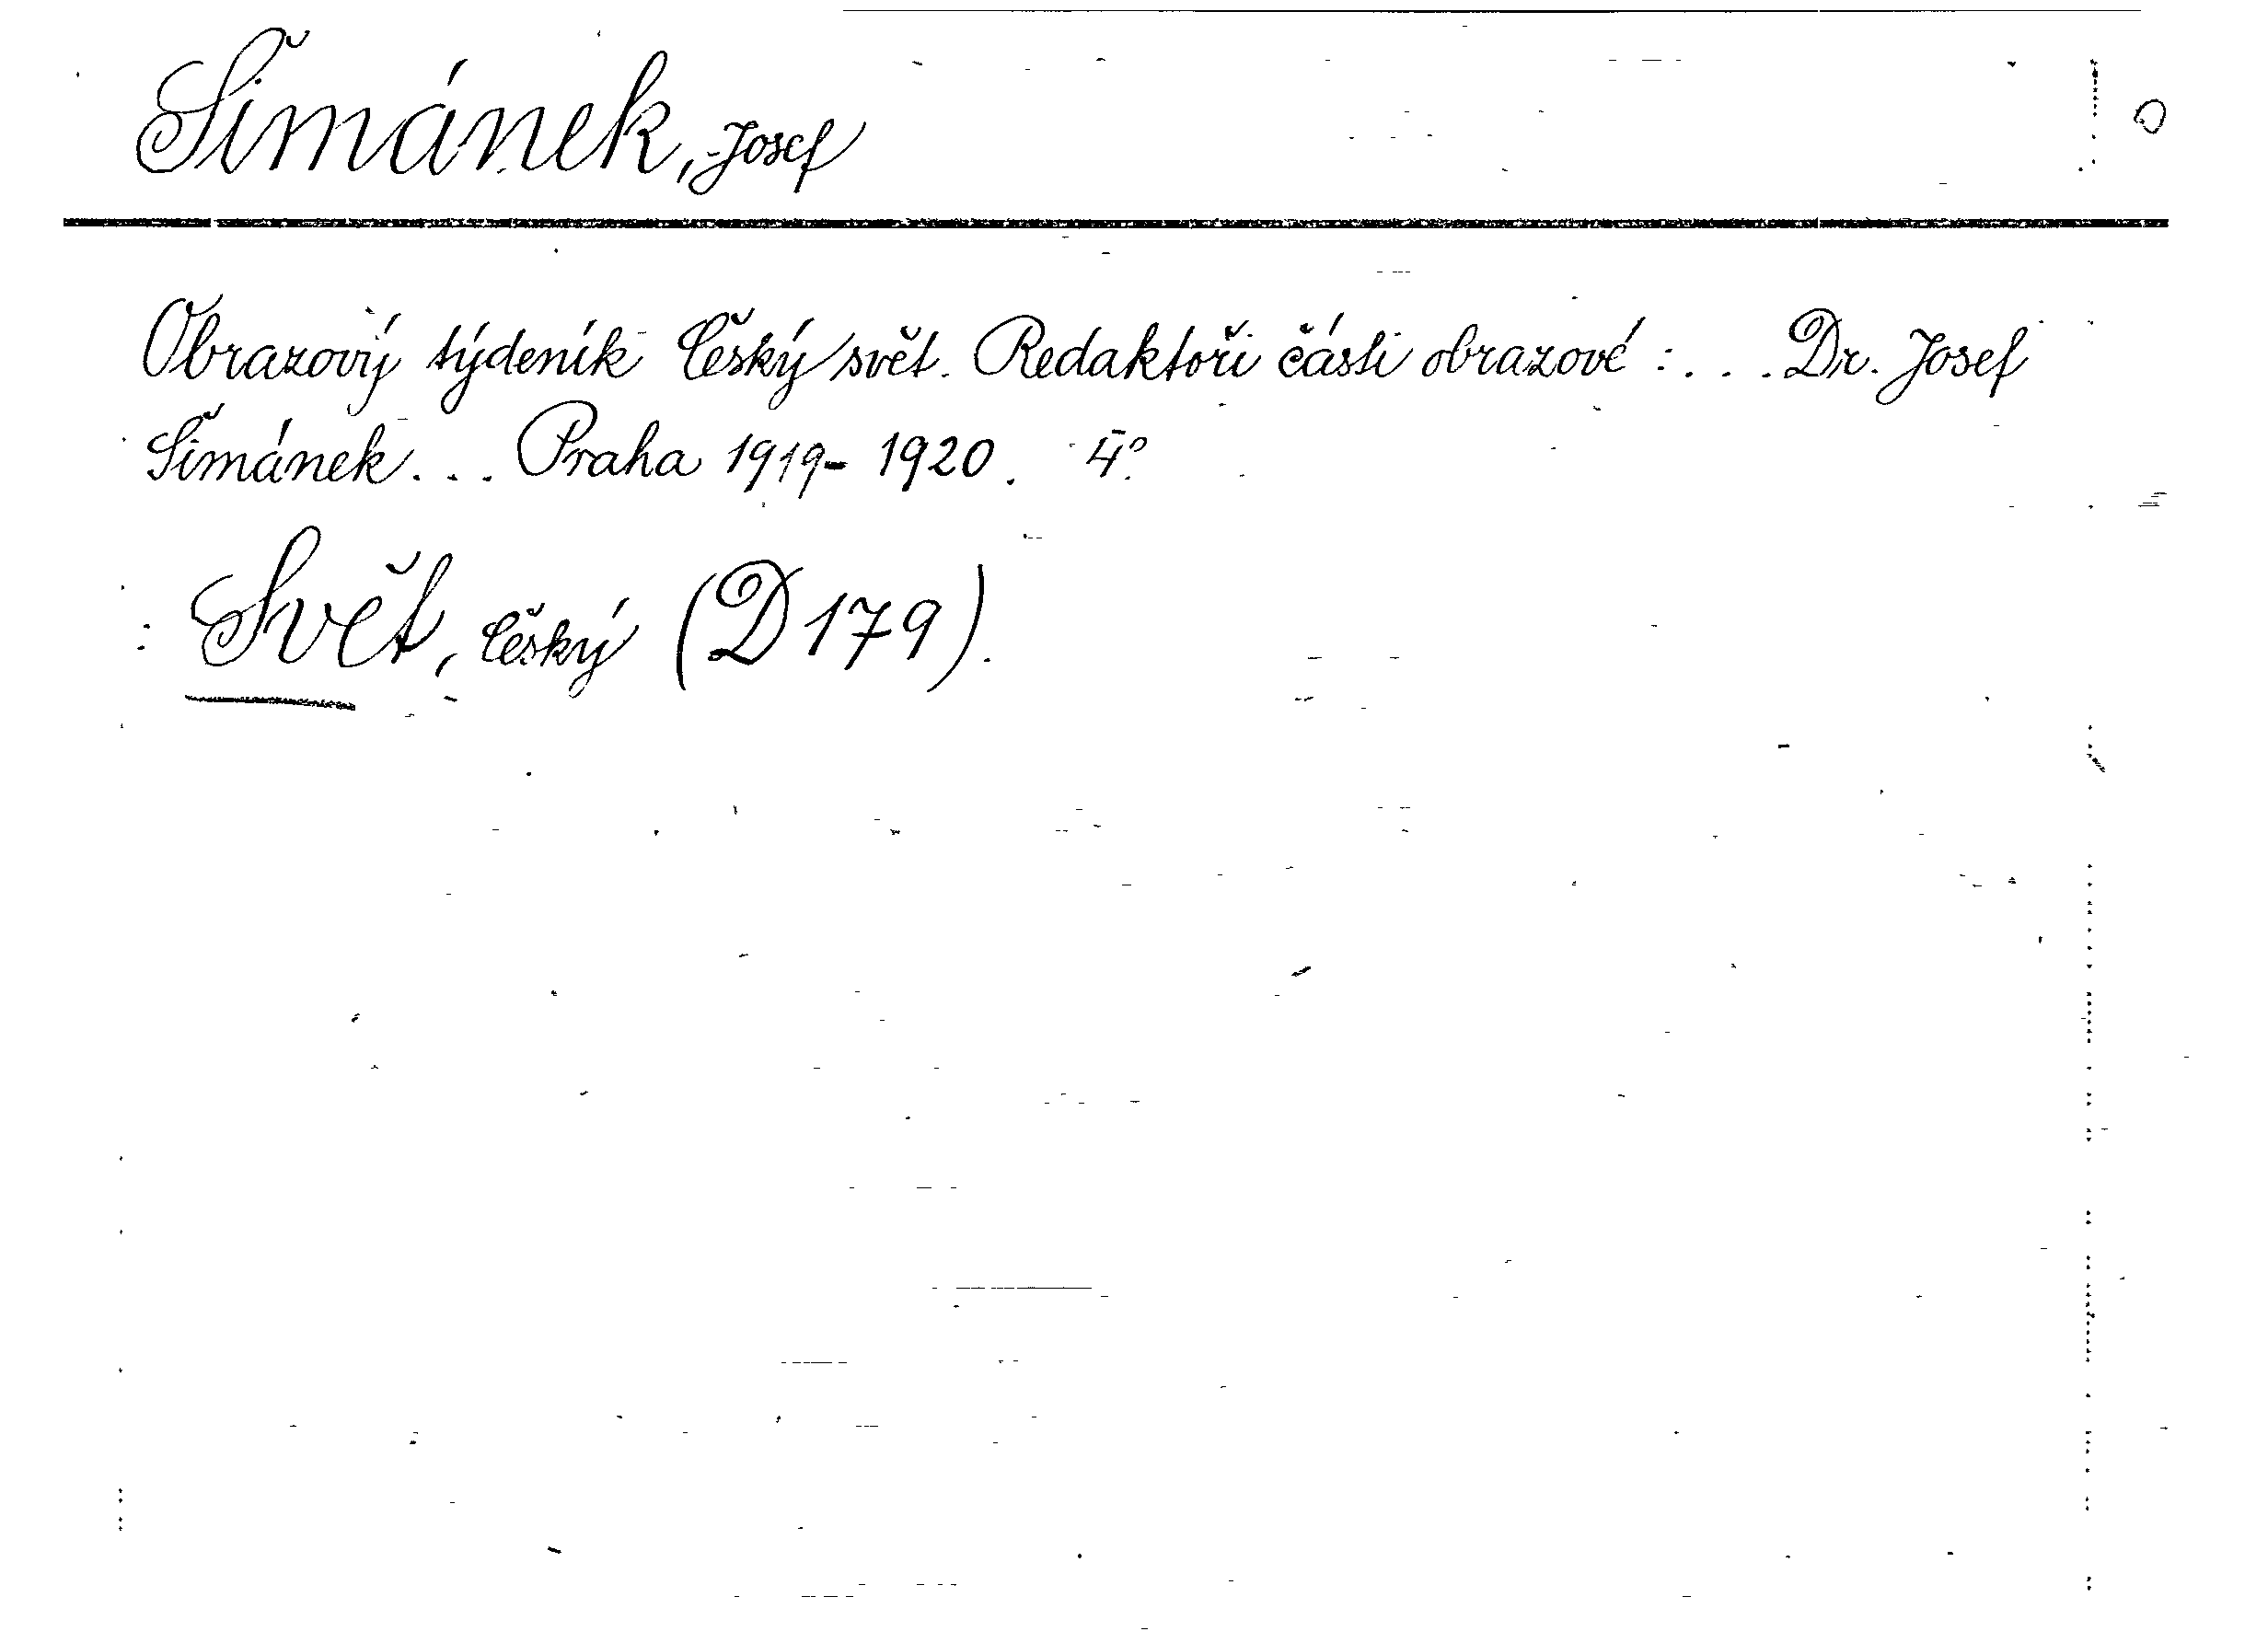 Šimánek, Josef
Obrazový týdeník Český svět. Redaktoři části obrazové: . . . Dr. Josef
Šimánek . . . Praha 1919-1920. 4°.
Svět, Český (D 179).